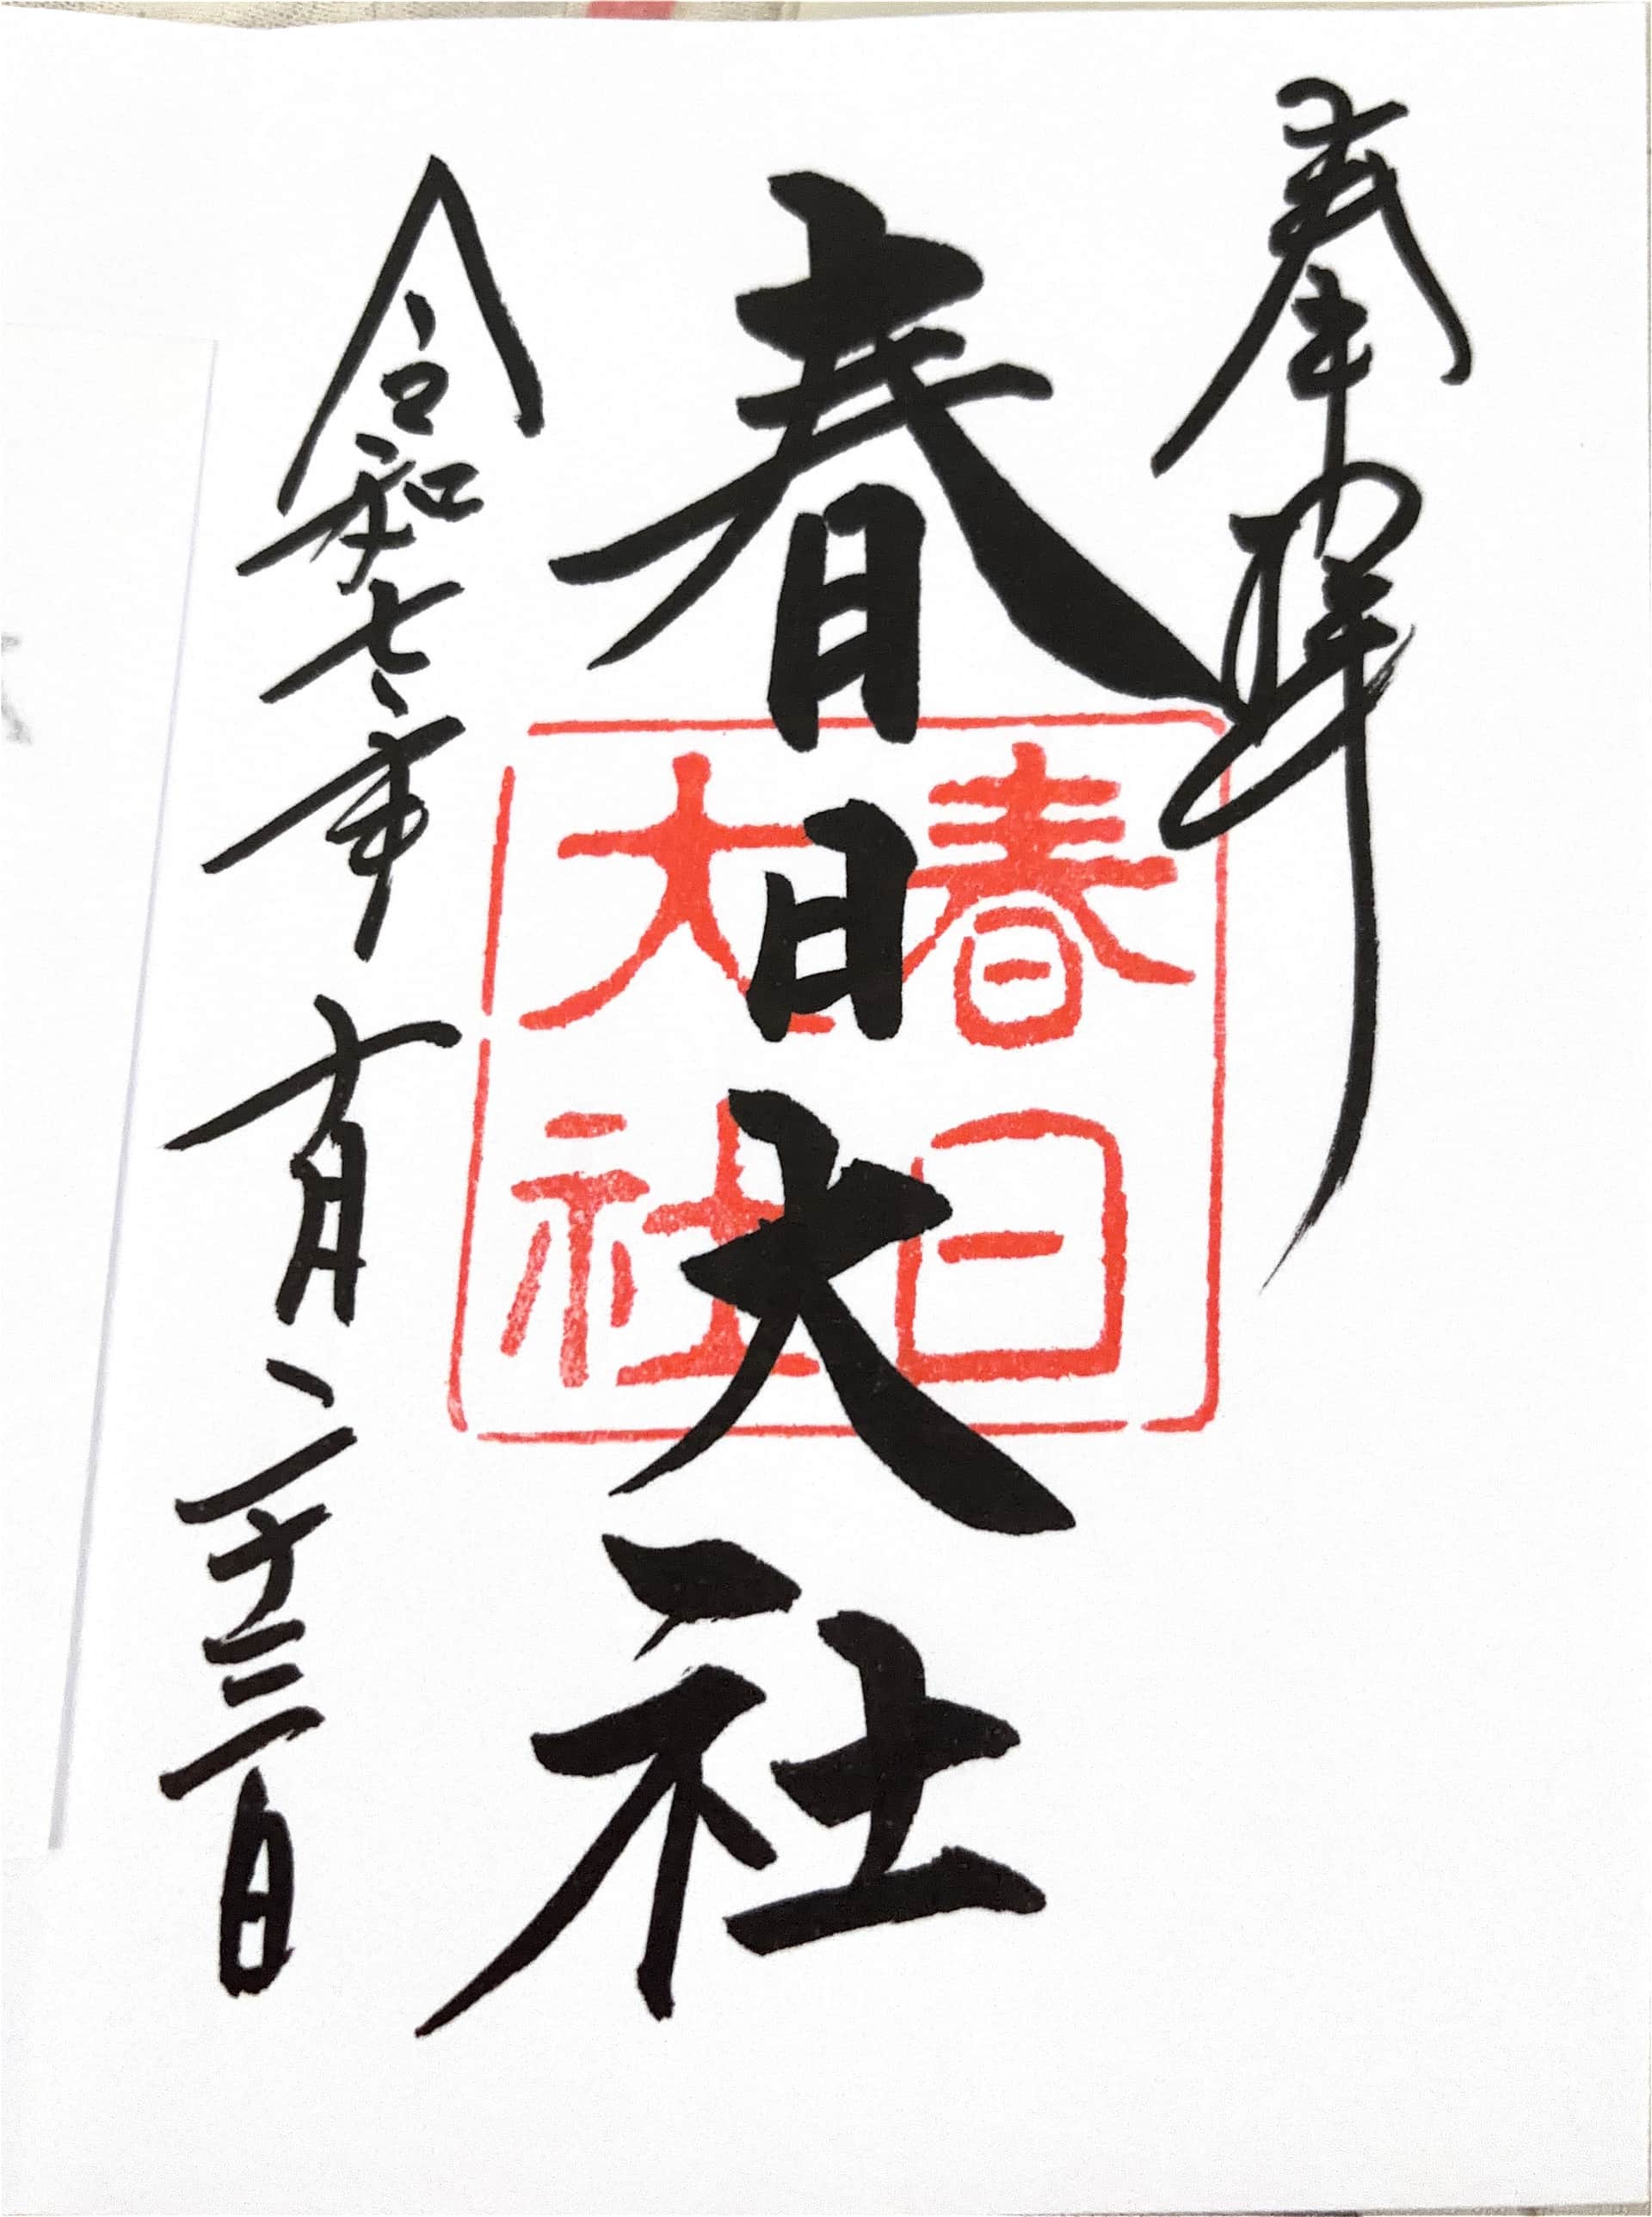 奉拝
春日大社
春日
大社
令和七年十月二十三日